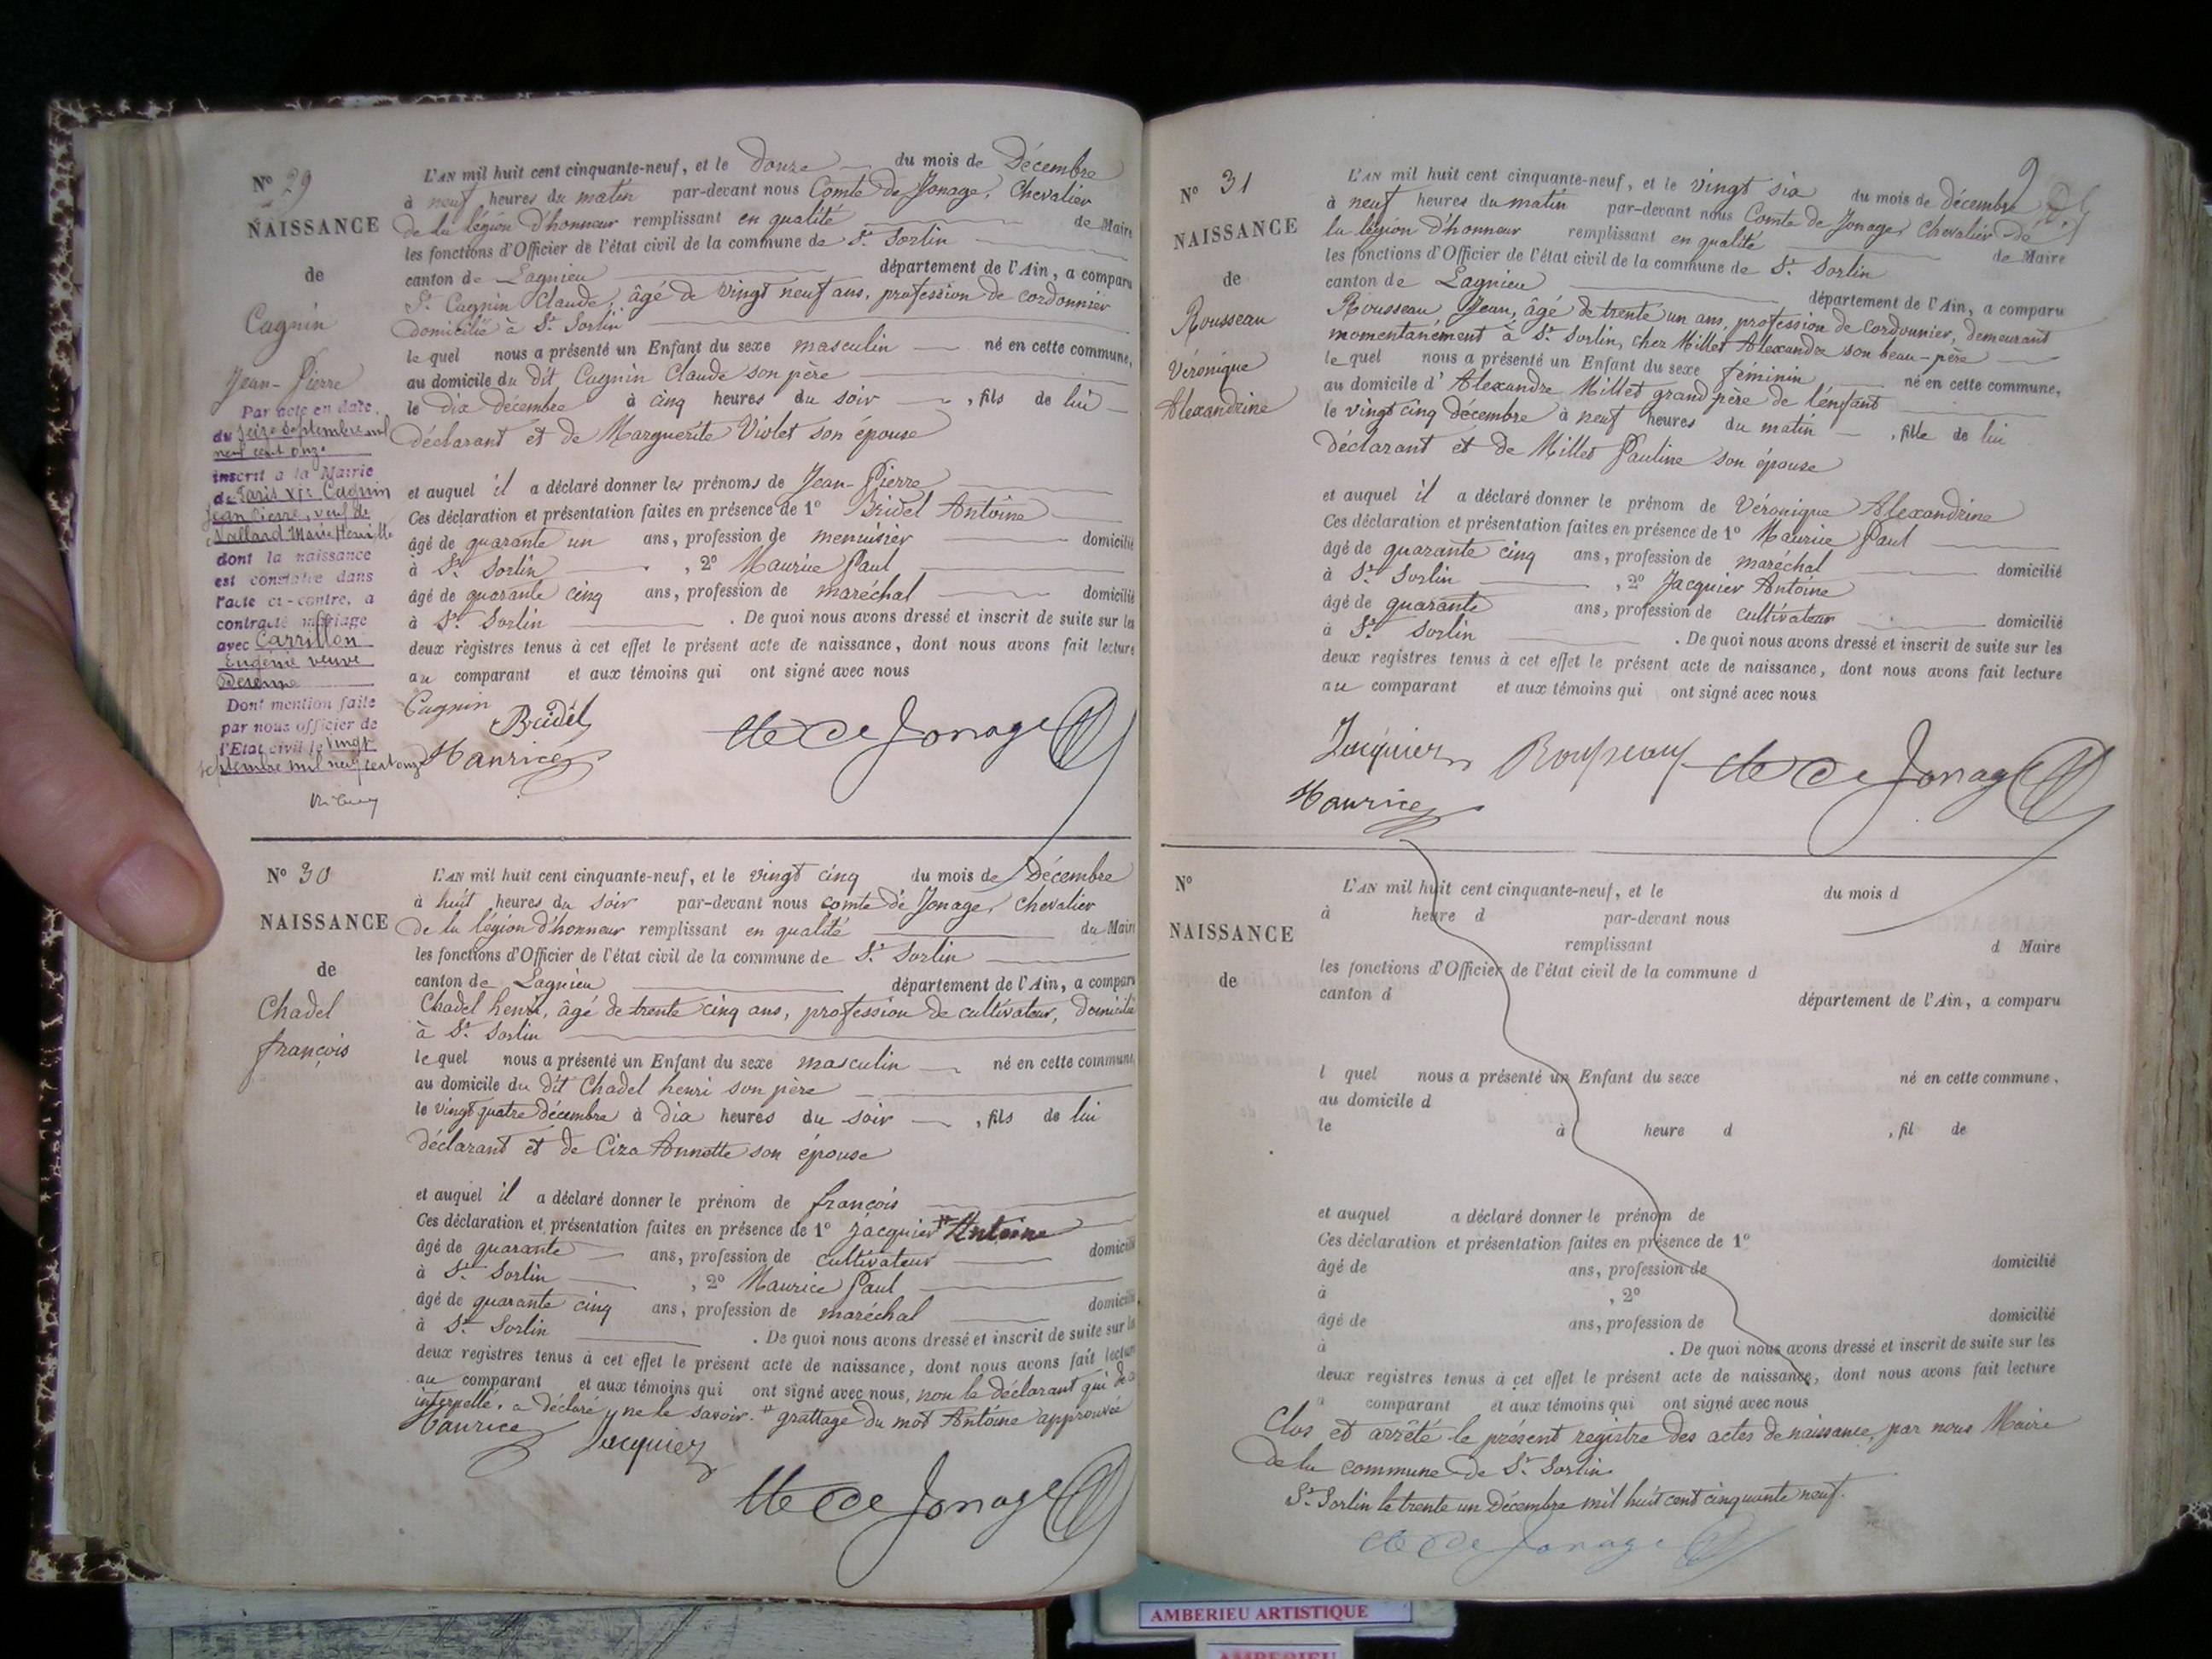 Nº 29
NAISSANCE
de
Cagnin
Jean-Pierre
Par acte en date
du seize septembre mil
neuf cent onze
inscrit a la Mairie
de Paris XIe Cagnin
Jean Pierre, veuf de
Vallard Marie Henriette
dont la naissance
est constatée dans
l'acte ci-contre, a
contracté mariage
avec Carrillon
Eugénie veuve
Desenne
Dont mention faite
par nous officier de
l'Etat civil le vingt
septembre mil neuf cent onze
L'AN mil huit cent cinquante-neuf, et le douze du mois de Décembre
à neuf heures du matin par-devant nous Comte de Jonage, Chevalier
de la légion d'honneur remplissant en qualité de Maire
les fonctions d'Officier de l'état civil de la commune de St Sorlin
canton de Lagnieu département de l'Ain, a comparu
Sr Cagnin Claude, âgé de vingt neuf ans, profession de cordonnier
domicilié à St Sorlin
le quel nous a présenté un Enfant du sexe masculin né en cette commune,
au domicile du dit Cagnin Claude son père
le dix décembre à cinq heures du soir, fils de lui
déclarant et de Marguerite Violet son épouse
et auquel il a déclaré donner les prénoms de Jean-Pierre
Ces déclaration et présentation faites en présence de 1º Bridel Antoine
âgé de quarante un ans, profession de menuisier domicilié
à St Sorlin, 2º Maurice Paul
âgé de quarante cinq ans, profession de maréchal domicilié
à St Sorlin. De quoi nous avons dressé et inscrit de suite sur les
deux registres tenus à cet effet le présent acte de naissance, dont nous avons fait lecture
au comparant et aux témoins qui ont signé avec nous
Cagnin
Bridel
Maurice
Cte de Jonage
Nº 30
NAISSANCE
de
Chadel
françois
L'AN mil huit cent cinquante-neuf, et le vingt cinq du mois de Décembre
à huit heures du soir par-devant nous comte de Jonage, chevalier
de la légion d'honneur remplissant en qualité du Maire
les fonctions d'Officier de l'état civil de la commune de St Sorlin
canton de Lagnieu département de l'Ain, a comparu
Chadel henri, âgé de trente cinq ans, profession de cultivateur, domicilié
à St Sorlin
le quel nous a présenté un Enfant du sexe masculin né en cette commune,
au domicile du dit Chadel henri son père
le vingt quatre décembre à dix heures du soir, fils de lui
déclarant et de Ciza Annette son épouse
et auquel il a déclaré donner le prénom de françois
Ces déclaration et présentation faites en présence de 1º jacquier # Antoine
âgé de quarante ans, profession de cultivateur domicilié
à St Sorlin, 2º Maurice Paul
âgé de quarante cinq ans, profession de maréchal domicilié
à St Sorlin. De quoi nous avons dressé et inscrit de suite sur les
deux registres tenus à cet effet le présent acte de naissance, dont nous avons fait lecture
au comparant et aux témoins qui ont signé avec nous, non le déclarant qui de ce
interpellé, a déclaré ne le savoir. # grattage du mot Antoine approuvé
Maurice
Jacquier
Cte de Jonage
9
Nº 31
NAISSANCE
de
Rousseau
Véronique
Alexandrine
L'AN mil huit cent cinquante-neuf, et le vingt six du mois de décembre
à neuf heures du matin par-devant nous Comte de Jonage, Chevalier de
la légion d'honneur remplissant en qualité de Maire
les fonctions d'Officier de l'état civil de la commune de St Sorlin
canton de Lagnieu département de l'Ain, a comparu
Rousseau Jean, âgé de trente un ans, profession de cordonnier, demeurant
momentanément à St Sorlin, chez Millet Alexandre son beau-père
le quel nous a présenté un Enfant du sexe féminin né en cette commune,
au domicile d'Alexandre Millet grand père de l'enfant
le vingt cinq décembre à neuf heures du matin, fille de lui
déclarant et de Millet Pauline son épouse
et auquel il a déclaré donner le prénom de Véronique Alexandrine
Ces déclaration et présentation faites en présence de 1º Maurice Paul
âgé de quarante cinq ans, profession de maréchal domicilié
à St Sorlin, 2º Jacquier Antoine
âgé de quarante ans, profession de cultivateur domicilié
à St Sorlin. De quoi nous avons dressé et inscrit de suite sur les
deux registres tenus à cet effet le présent acte de naissance, dont nous avons fait lecture
au comparant et aux témoins qui ont signé avec nous
Jacquier
Rousseau
Cte de Jonage
Maurice
Nº
NAISSANCE
de
L'AN mil huit cent cinquante-neuf, et le du mois d
à heure d par-devant nous
remplissant d Maire
les fonctions d'Officier de l'état civil de la commune d
canton d département de l'Ain, a comparu
l quel nous a présenté un Enfant du sexe né en cette commune,
au domicile d
le à heure d , fil de
et auquel a déclaré donner le prénom de
Ces déclaration et présentation faites en présence de 1º
âgé de ans, profession de domicilié
à , 2º
âgé de ans, profession de domicilié
à . De quoi nous avons dressé et inscrit de suite sur les
deux registres tenus à cet effet le présent acte de naissance, dont nous avons fait lecture
a comparant et aux témoins qui ont signé avec nous
Clos et arrêté le présent registre des actes de naissance, par nous Maire
de la commune de St Sorlin
St Sorlin le trente un Décembre mil huit cent cinquante neuf.
Cte de Jonage
AMBERIEU ARTISTIQUE
AMBERIEU